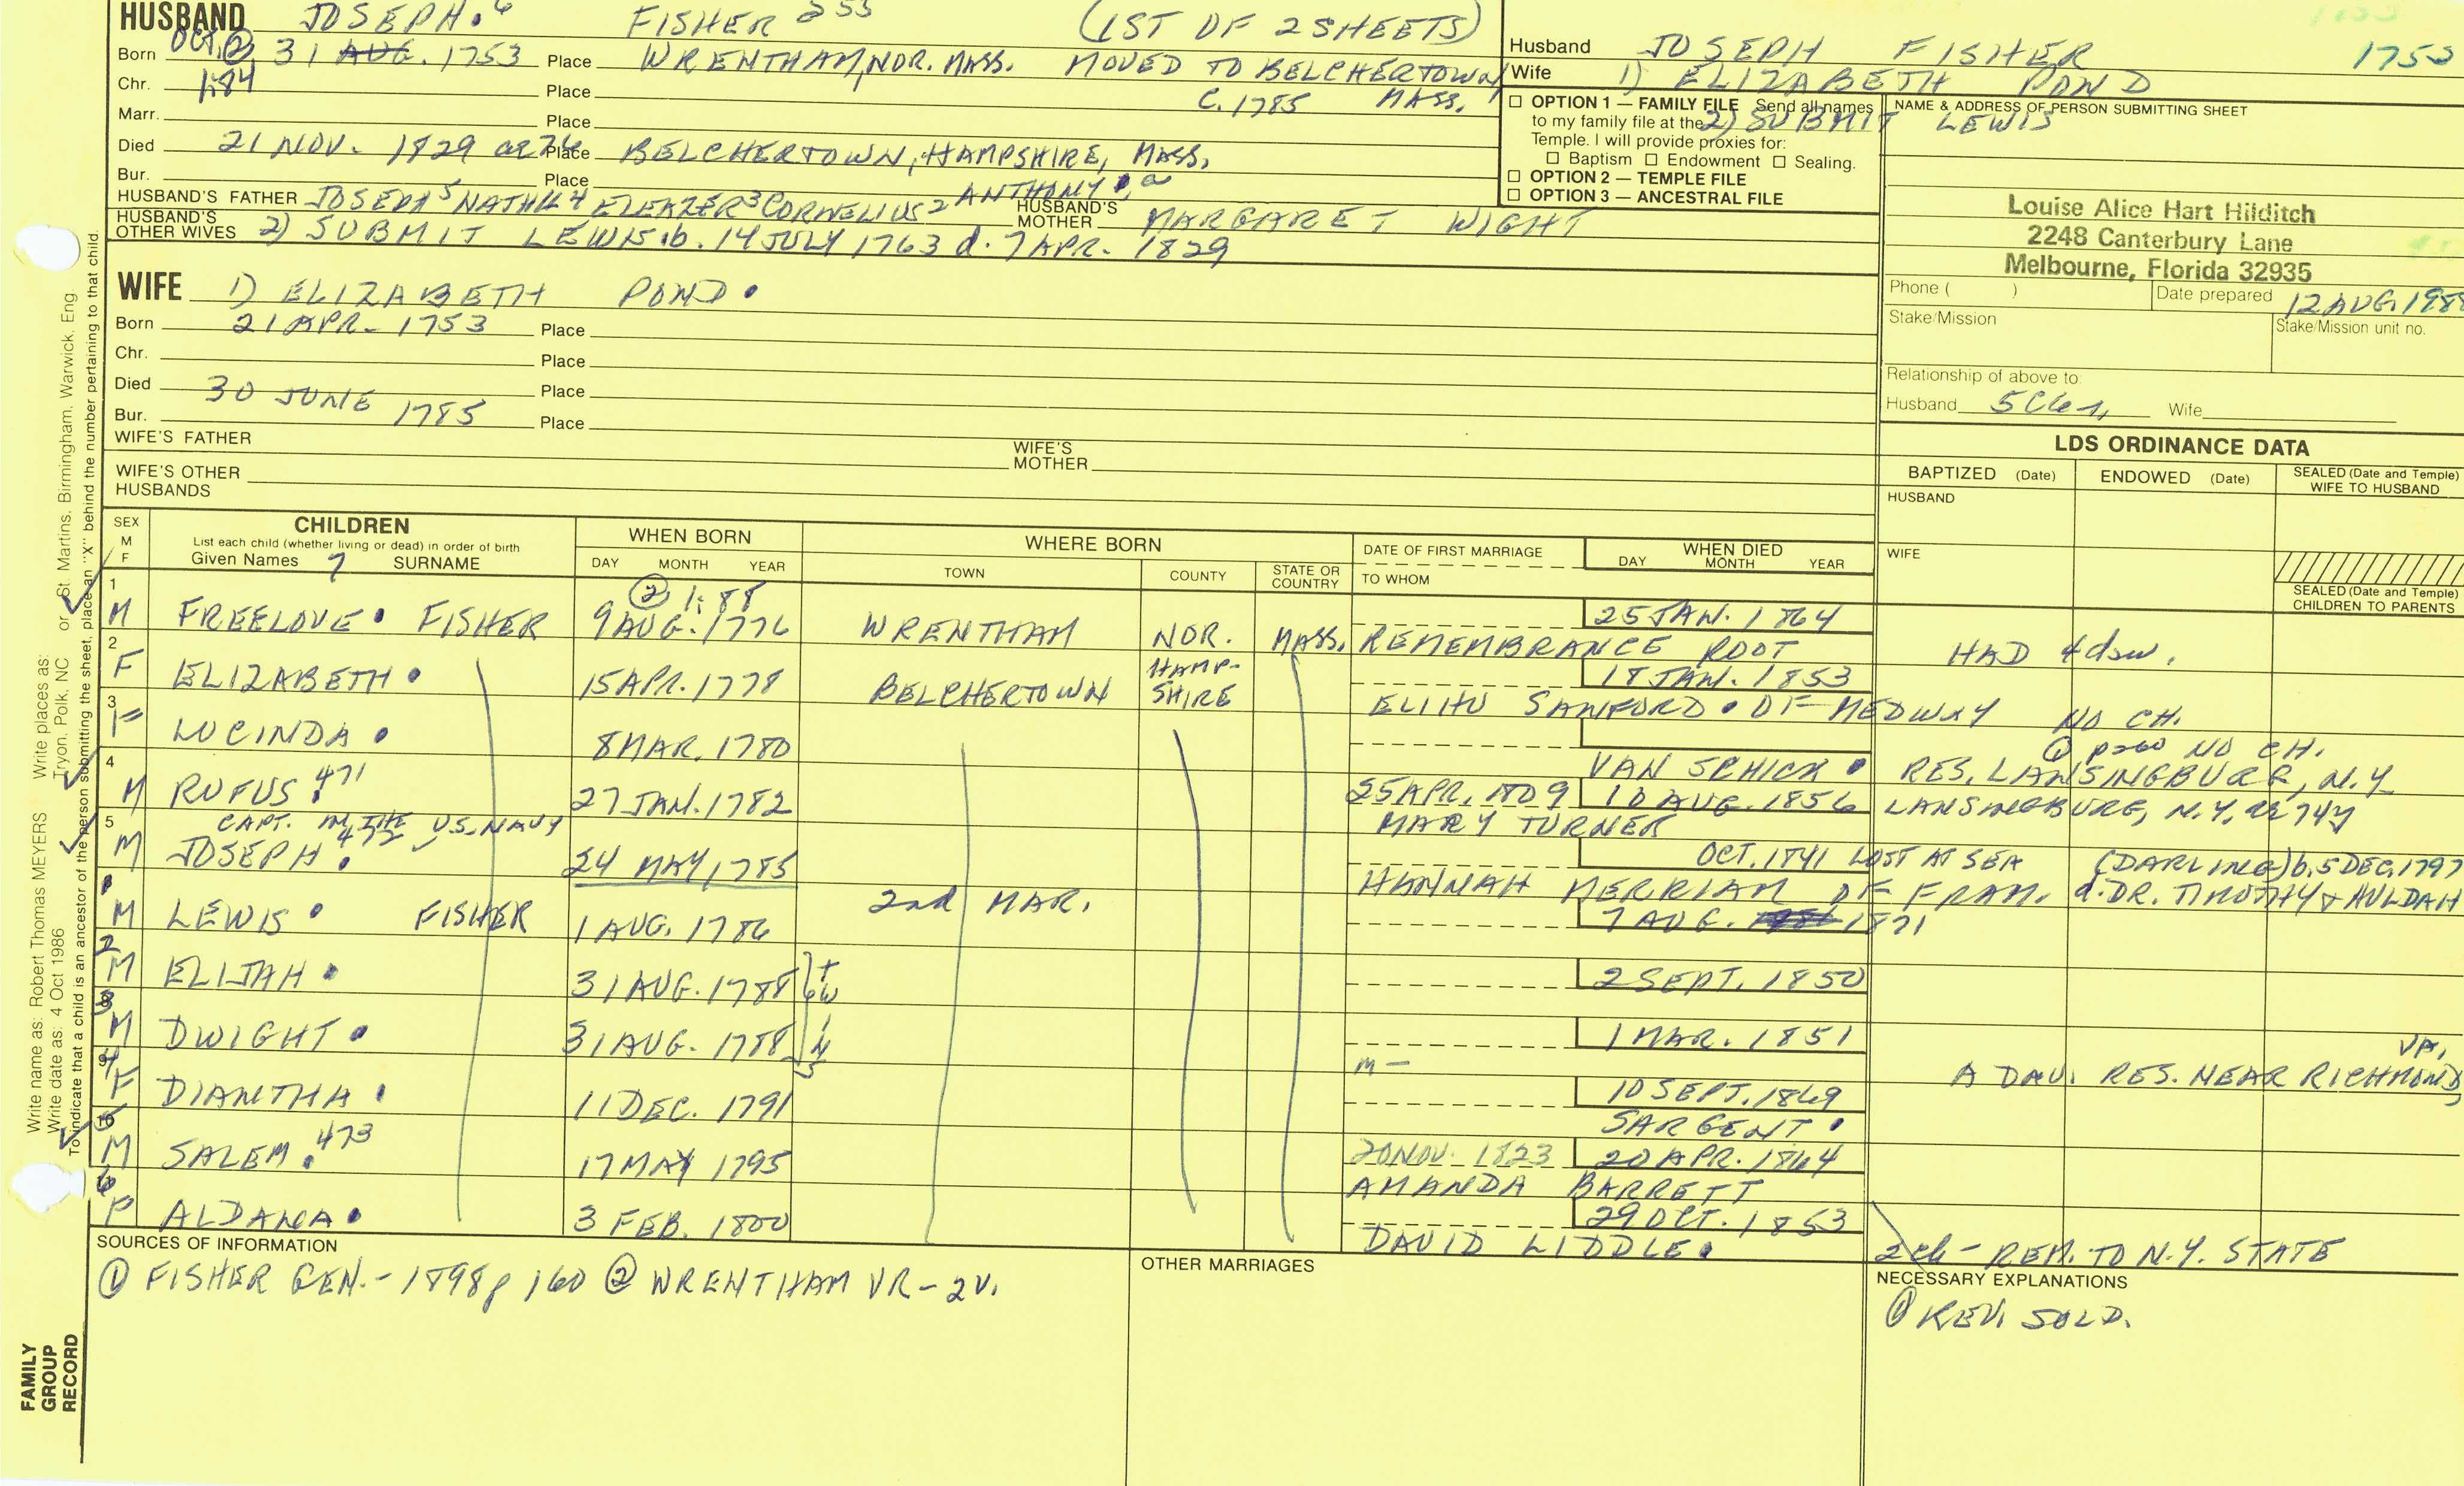 HUSBAND JOSEPH.6 FISHER 255 (1ST OF 2 SHEETS)
Born OCT. ② 31 AUG. 1753 Place WRENTHAM, NOR. MASS. MOVED TO BELCHERTOWN
Chr. 1:84 Place C. 1785 MASS.
Marr. Place
Died 21 NOV. 1829 ae 76 Place BELCHERTOWN, HAMPSHIRE, MASS.
Bur. Place
HUSBAND'S FATHER JOSEPH5 NATH'L4 ELEAZER3 CORNELIUS2 ANTHONY1 HUSBAND'S MOTHER MARGARET WIGHT
HUSBAND'S OTHER WIVES 2) SUBMIT LEWIS. b. 14 JULY 1763 d. 7 APR. 1829
Husband JOSEPH FISHER 1753
Wife 1) ELIZABETH POND
2) SUBMIT LEWIS
☐ OPTION 1 — FAMILY FILE Send all names
to my family file at the
Temple. I will provide proxies for:
☐ Baptism ☐ Endowment ☐ Sealing.
☐ OPTION 2 — TEMPLE FILE
☐ OPTION 3 — ANCESTRAL FILE
NAME & ADDRESS OF PERSON SUBMITTING SHEET
Louise Alice Hart Hilditch
2248 Canterbury Lane
Melbourne, Florida 32935
Phone ( ) Date prepared 12 AUG. 1988
Stake/Mission Stake/Mission unit no.
Relationship of above to:
Husband 5C6r, Wife
WIFE 1) ELIZABETH POND.
Born 21 APR. 1753 Place
Chr. Place
Died 30 JUNE 1785 Place
Bur. Place
WIFE'S FATHER WIFE'S MOTHER
WIFE'S OTHER HUSBANDS
LDS ORDINANCE DATA
BAPTIZED (Date) ENDOWED (Date) SEALED (Date and Temple) WIFE TO HUSBAND
HUSBAND
WIFE
SEALED (Date and Temple) CHILDREN TO PARENTS
SEX M F CHILDREN WHEN BORN WHERE BORN DATE OF FIRST MARRIAGE WHEN DIED
List each child (whether living or dead) in order of birth
Given Names SURNAME DAY MONTH YEAR TOWN COUNTY STATE OR COUNTRY TO WHOM DAY MONTH YEAR
② 1:88
1 M FREELOVE. FISHER 9 AUG. 1776 WRENTHAM NOR. MASS. 25 JAN. 1864
REMEMBRANCE ROOT HAD 4 dau.
2 F ELIZABETH. 15 APR. 1778 BELCHERTOWN HAMP-SHIRE 18 JAN. 1853
ELIHU SANFORD. OF MEDWAY NO CH.
3 F LUCINDA. 8 MAR. 1780 ① p260 NO CH.
VAN SCHICK. RES. LANSINGBURR, N.Y.
4 M RUFUS.471 27 JAN. 1782 25 APR. 1809 10 AUG. 1856 LANSINGBURG, N.Y. ae 74y
CAPT. IN THE U.S. NAVY MARY TURNER
5 M JOSEPH.472 24 MAY, 1785 OCT. 1841 LOST AT SEA (DARLING) b. 5 DEC. 1797
HANNAH MERRIAM OF FRAM. d. DR. TIMOTHY & HULDAH
1 M LEWIS. FISHER 1 AUG. 1786 2nd MAR. 7 AUG. 1871
2 M ELIJAH. 31 AUG. 1788 2 SEPT. 1850
3 M DWIGHT. 31 AUG. 1788 1 MAR. 1851
TWINS
m — A DAU. RES. NEAR RICHMOND, VA.
4 F DIANTHA. 11 DEC. 1791 10 SEPT. 1869
SARGENT.
5 M SALEM.473 17 MAY 1795 20 NOV. 1823 20 APR. 1864
AMANDA BARRETT
6 F ALDANA. 3 FEB. 1800 29 OCT. 1853
DAVID LIDDLE. 2 ch - REM. TO N.Y. STATE
SOURCES OF INFORMATION
① FISHER GEN. - 1898 p 160 ② WRENTHAM VR - 2V.
OTHER MARRIAGES
NECESSARY EXPLANATIONS
① REV. SOLD.
Write name as: Robert Thomas MEYERS Write places as: Tryon, Polk, NC or St. Martins, Birmingham, Warwick, Eng
Write date as: 4 Oct 1986
To indicate that a child is an ancestor of the person submitting the sheet, place an "X" behind the number pertaining to that child.
FAMILY
GROUP
RECORD